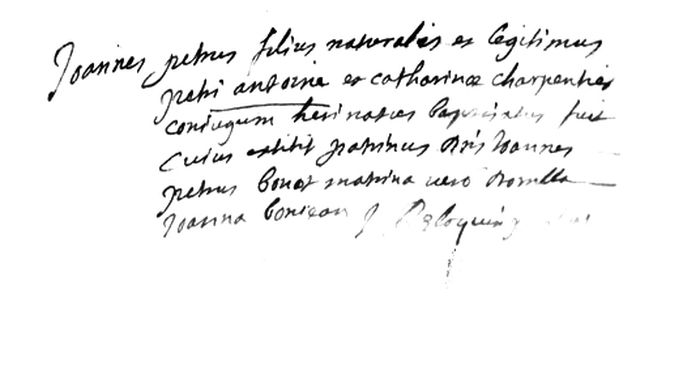 Joannes petrus filius naturalis et legitimus
petri antoine et catharinæ charpentier
coniugum heri natus baptisatus fuit
cuius extitit patrinus Dns Joannes
petrus bonet matrina vero Domlla
Joanna